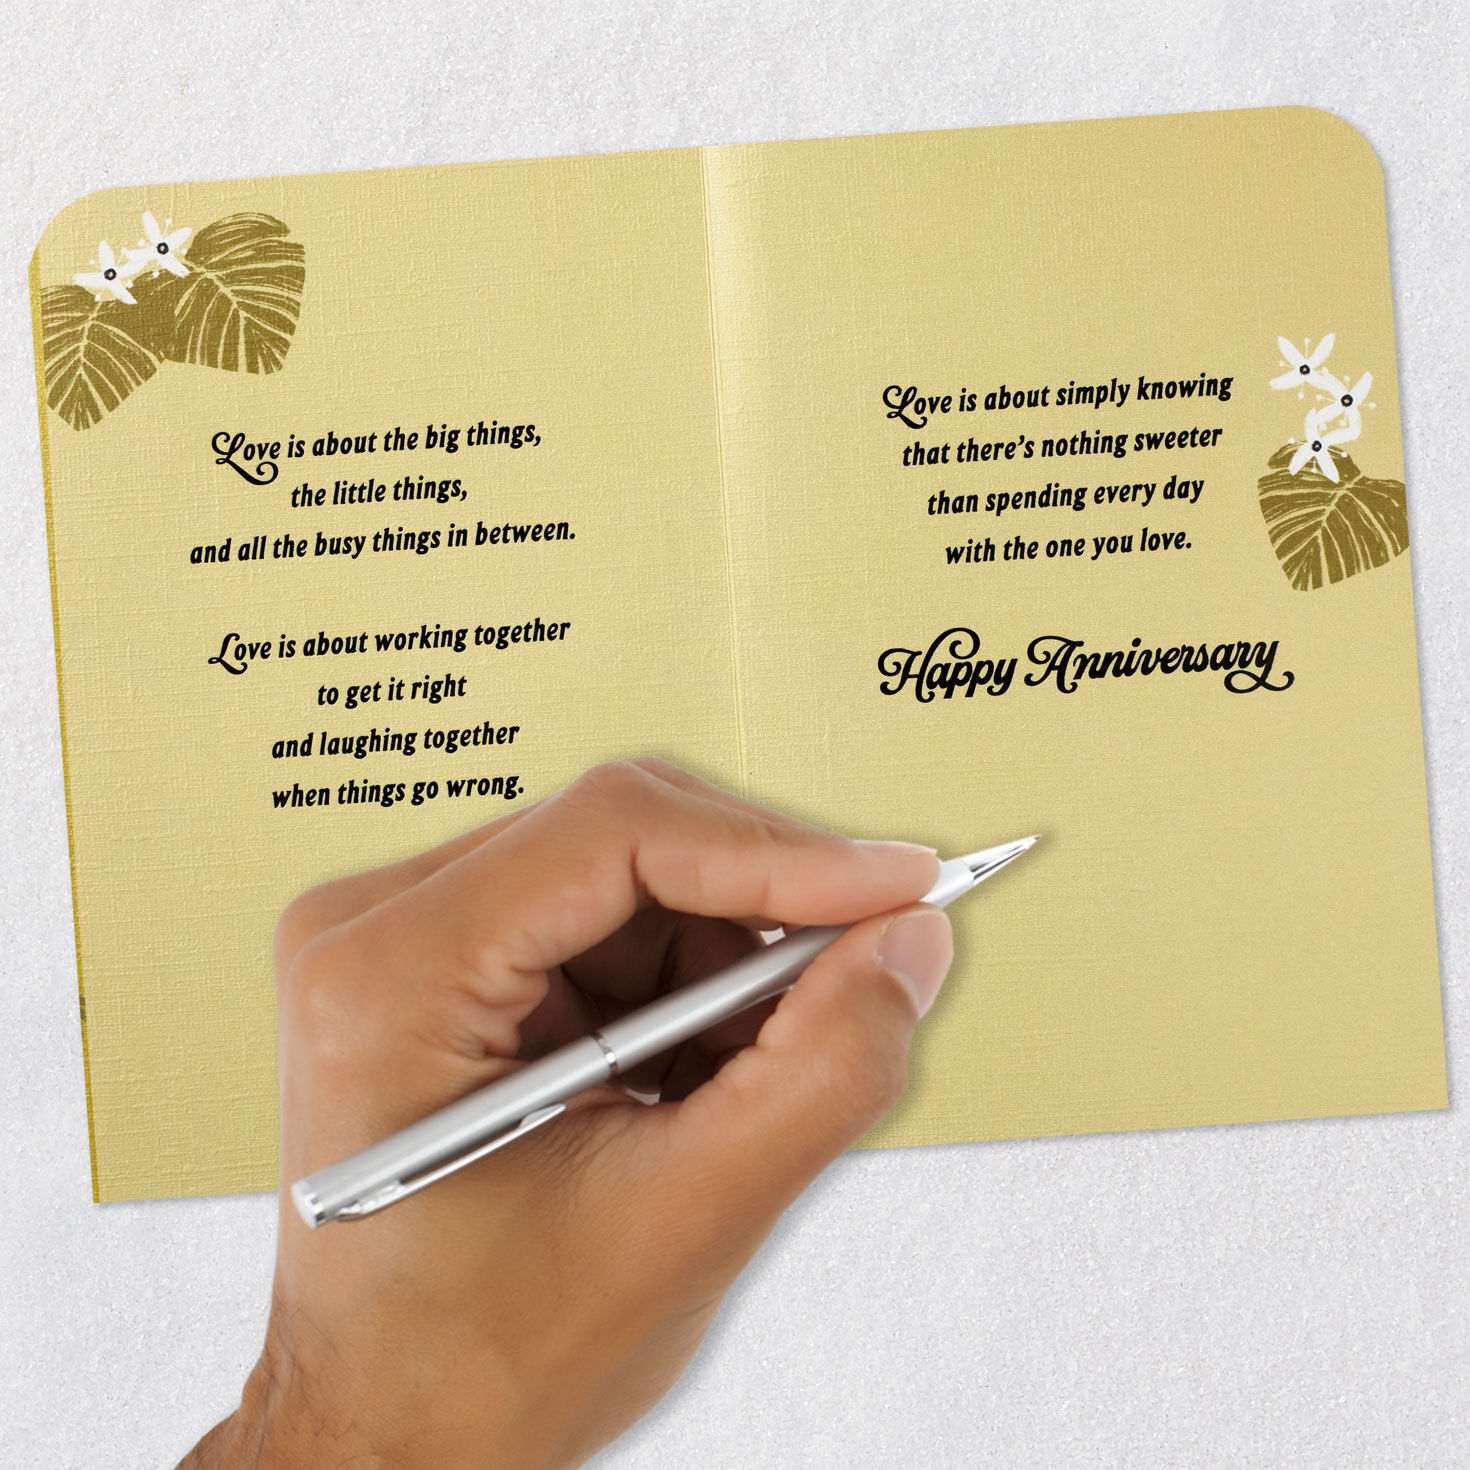 Love is about the big things,
the little things,
and all the busy things in between.
Love is about working together
to get it right
and laughing together
when things go wrong.
Love is about simply knowing
that there’s nothing sweeter
than spending every day
with the one you love.
Happy Anniversary